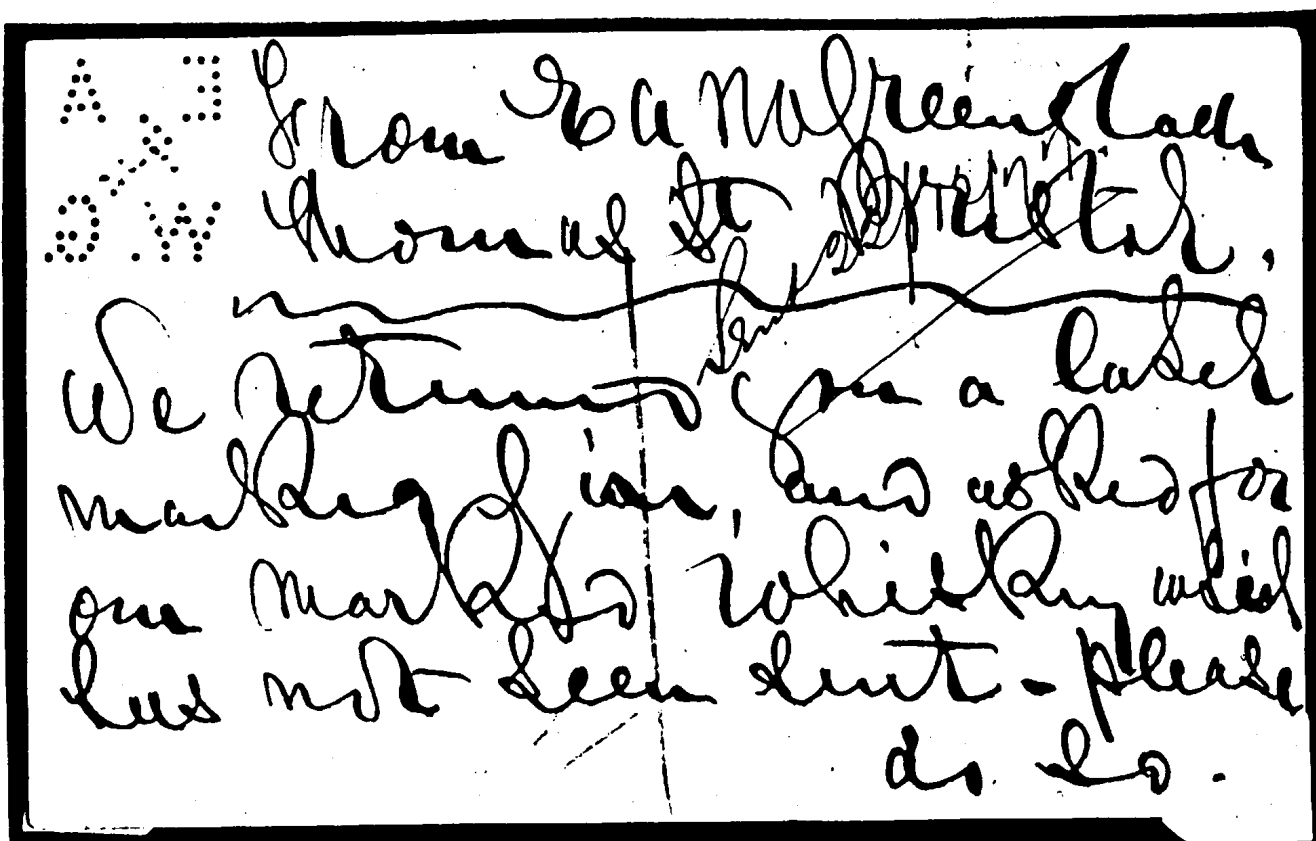 E. A
&
W. G.
From E A & W Greenslade
Thomas St Bristol.
We returned you a label
marking iron, and asked for
our marked Whiskey which
has not been sent - please
do so.